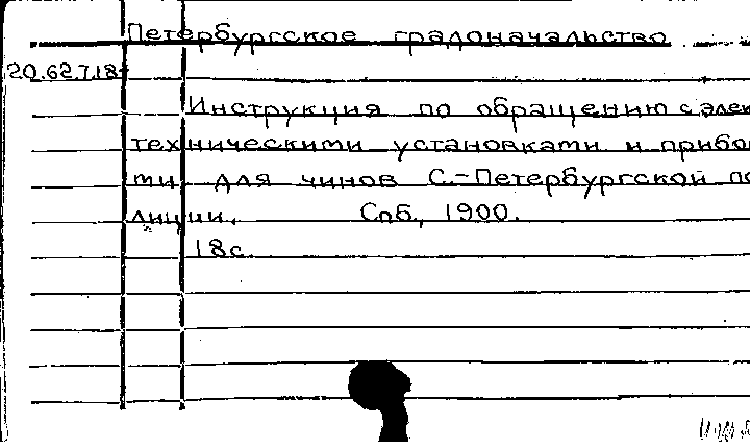 Петербургское градоначальство
20.62.7.18
Инструкция по обращению с элек
техническими установками и прибо
ми для чинов С.-Петербургской по
лиции. Спб., 1900.
18с.